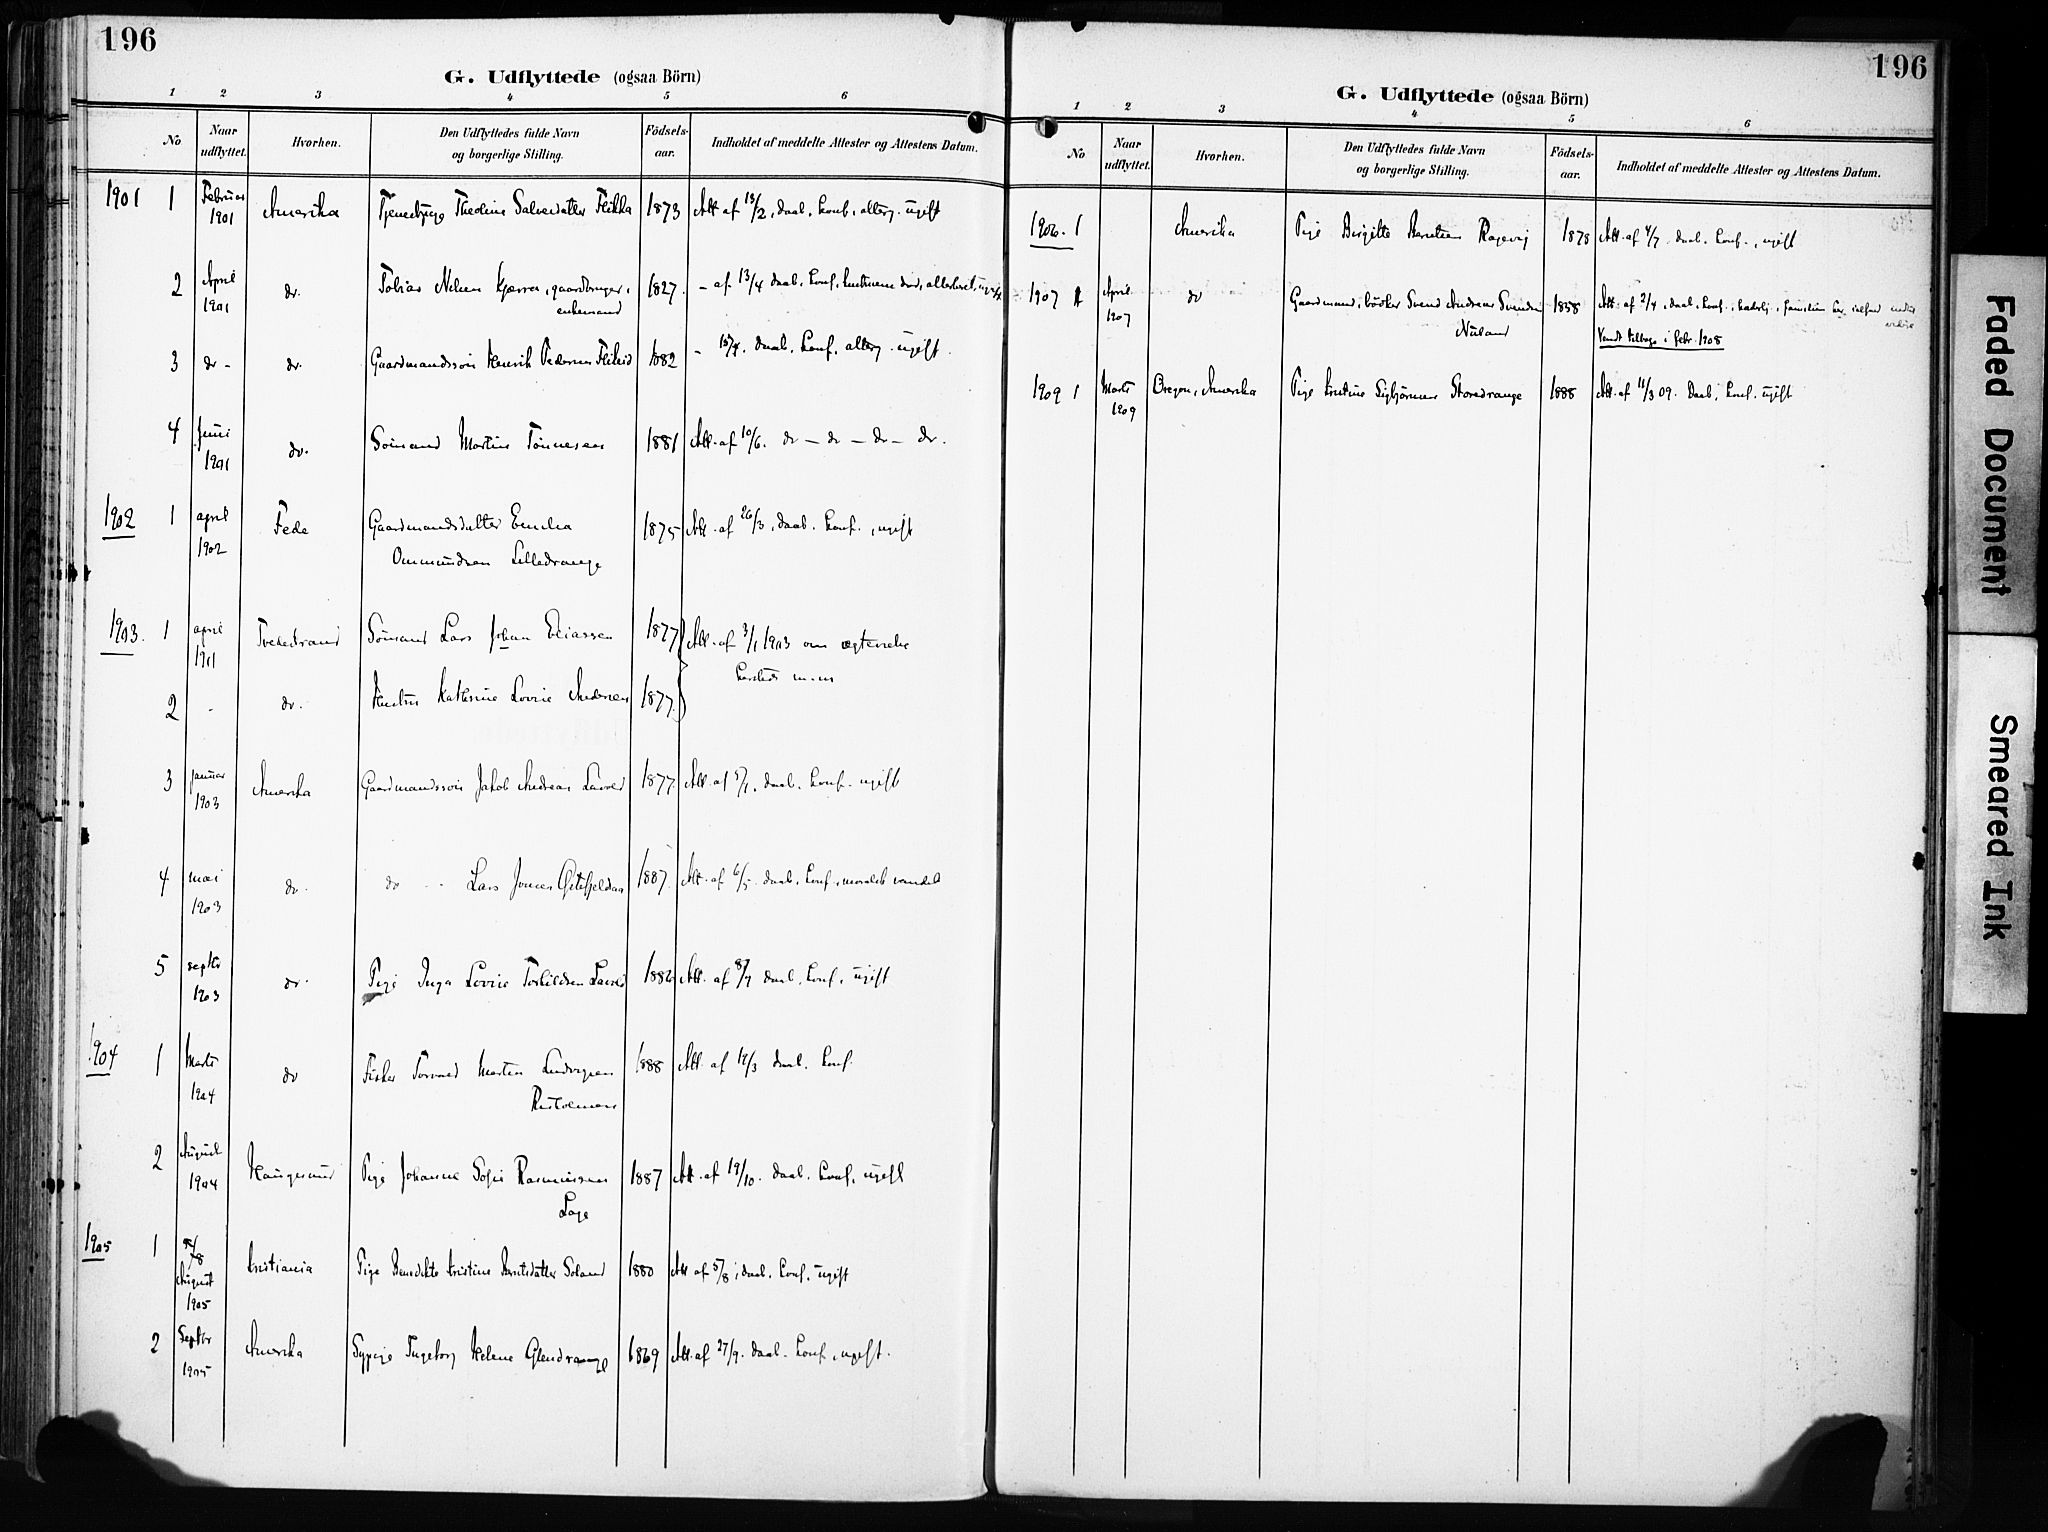 196
G. Udflyttede (ogsaa Börn)
1 2 3 4 5 6
No Naar udflyttet. Hvorhen. Den Udflyttedes fulde Navn og borgerlige Stilling. Födsels-aar. Indholdet af meddelte Attester og Attestens Datum.
1901 1 Februar 1901 Amerika Tjenestpige Theoline Salvesdatter Flikka 1873 Att af 13/2, daab, konf, alterg. ugift
2 April 1901 do. Tobias Nilsen Kjørra, gaardbruger, 1827. – af 13/4 daab, konf, hustruens død,
enkemand
3 do – do. Gaardmandssøn Henrik Pedersen 1882 – daab. konf. alterg. ugift.
4 Juni 1901 do. Sømand Martin Tønnesen 1881 Att. af 10/6. do – do – do – do.
1902 1 april 1902 Fede Gaardmandsdatter Emelia 1875 Att. af 26/3, daab. konf., ugift
Ommundsen Lilledrange
1903. 1 april Tvedestrand Sømand Lars Johan Eliassen 1877 Att. af 3/1 1903 om
2 - do. Hustru Kathrine Lovise Andersen 1877
3 januar 1903 Amerika Gaardmandssøn Jakob Andreas 1877. Att. af 5/1, daab. konf. ugift
4 mai 1903 do. do Lars 1887. Att. af 6/5. daab, konf, moralsk vandel
5 septbr 1903 do. Pige Inga Lovise 1882 Att. af daab, konf, ugift
1904 1 Marts 1904 do Fisker Torvald Martin Ludvigsen 1888 Att. af daab. konf.
2 August 1904 Haugesund Pige Johanne Sofie Rasmussen 1887 Att. af 19/10. daab. konf, ugift
1905 1 August 1905 Kristiania Pige Benedikte Kristine Berntsdatter 1880 Att af 5/8, daab. konf. ugift
2 Septbr 1905 Amerika Sypige Ingeborg Helene Glendrange 1869 Att. af 27/9. daab. konf, ugift.
196
G. Udflyttede (ogsaa Börn)
1 2 3 4 5 6
No Naar udflyttet. Hvorhen. Den Udflyttedes fulde Navn og borgerlige Stilling. Födsels-aar. Indholdet af meddelte Attester og Attestens Datum.
1906. 1 Amerika Pige Birgitte Berntsen Rægevig 1878 Att. af 4/7. daab. konf., ugift
1907 1 April 1907 do Gaardmand, Svend Andreas Svendsen 1858 Att. af 2/4, daab, konf.,
Nuland Vendt tilbage i febr. 1908
1909 1 Marts 1909 Oregon, Amerika Pige Kristine Sigbjørnsen Storedrange 1888 Att. af 11/3 09. Daab, konf. ugift
Faded Document
Smeared Ink